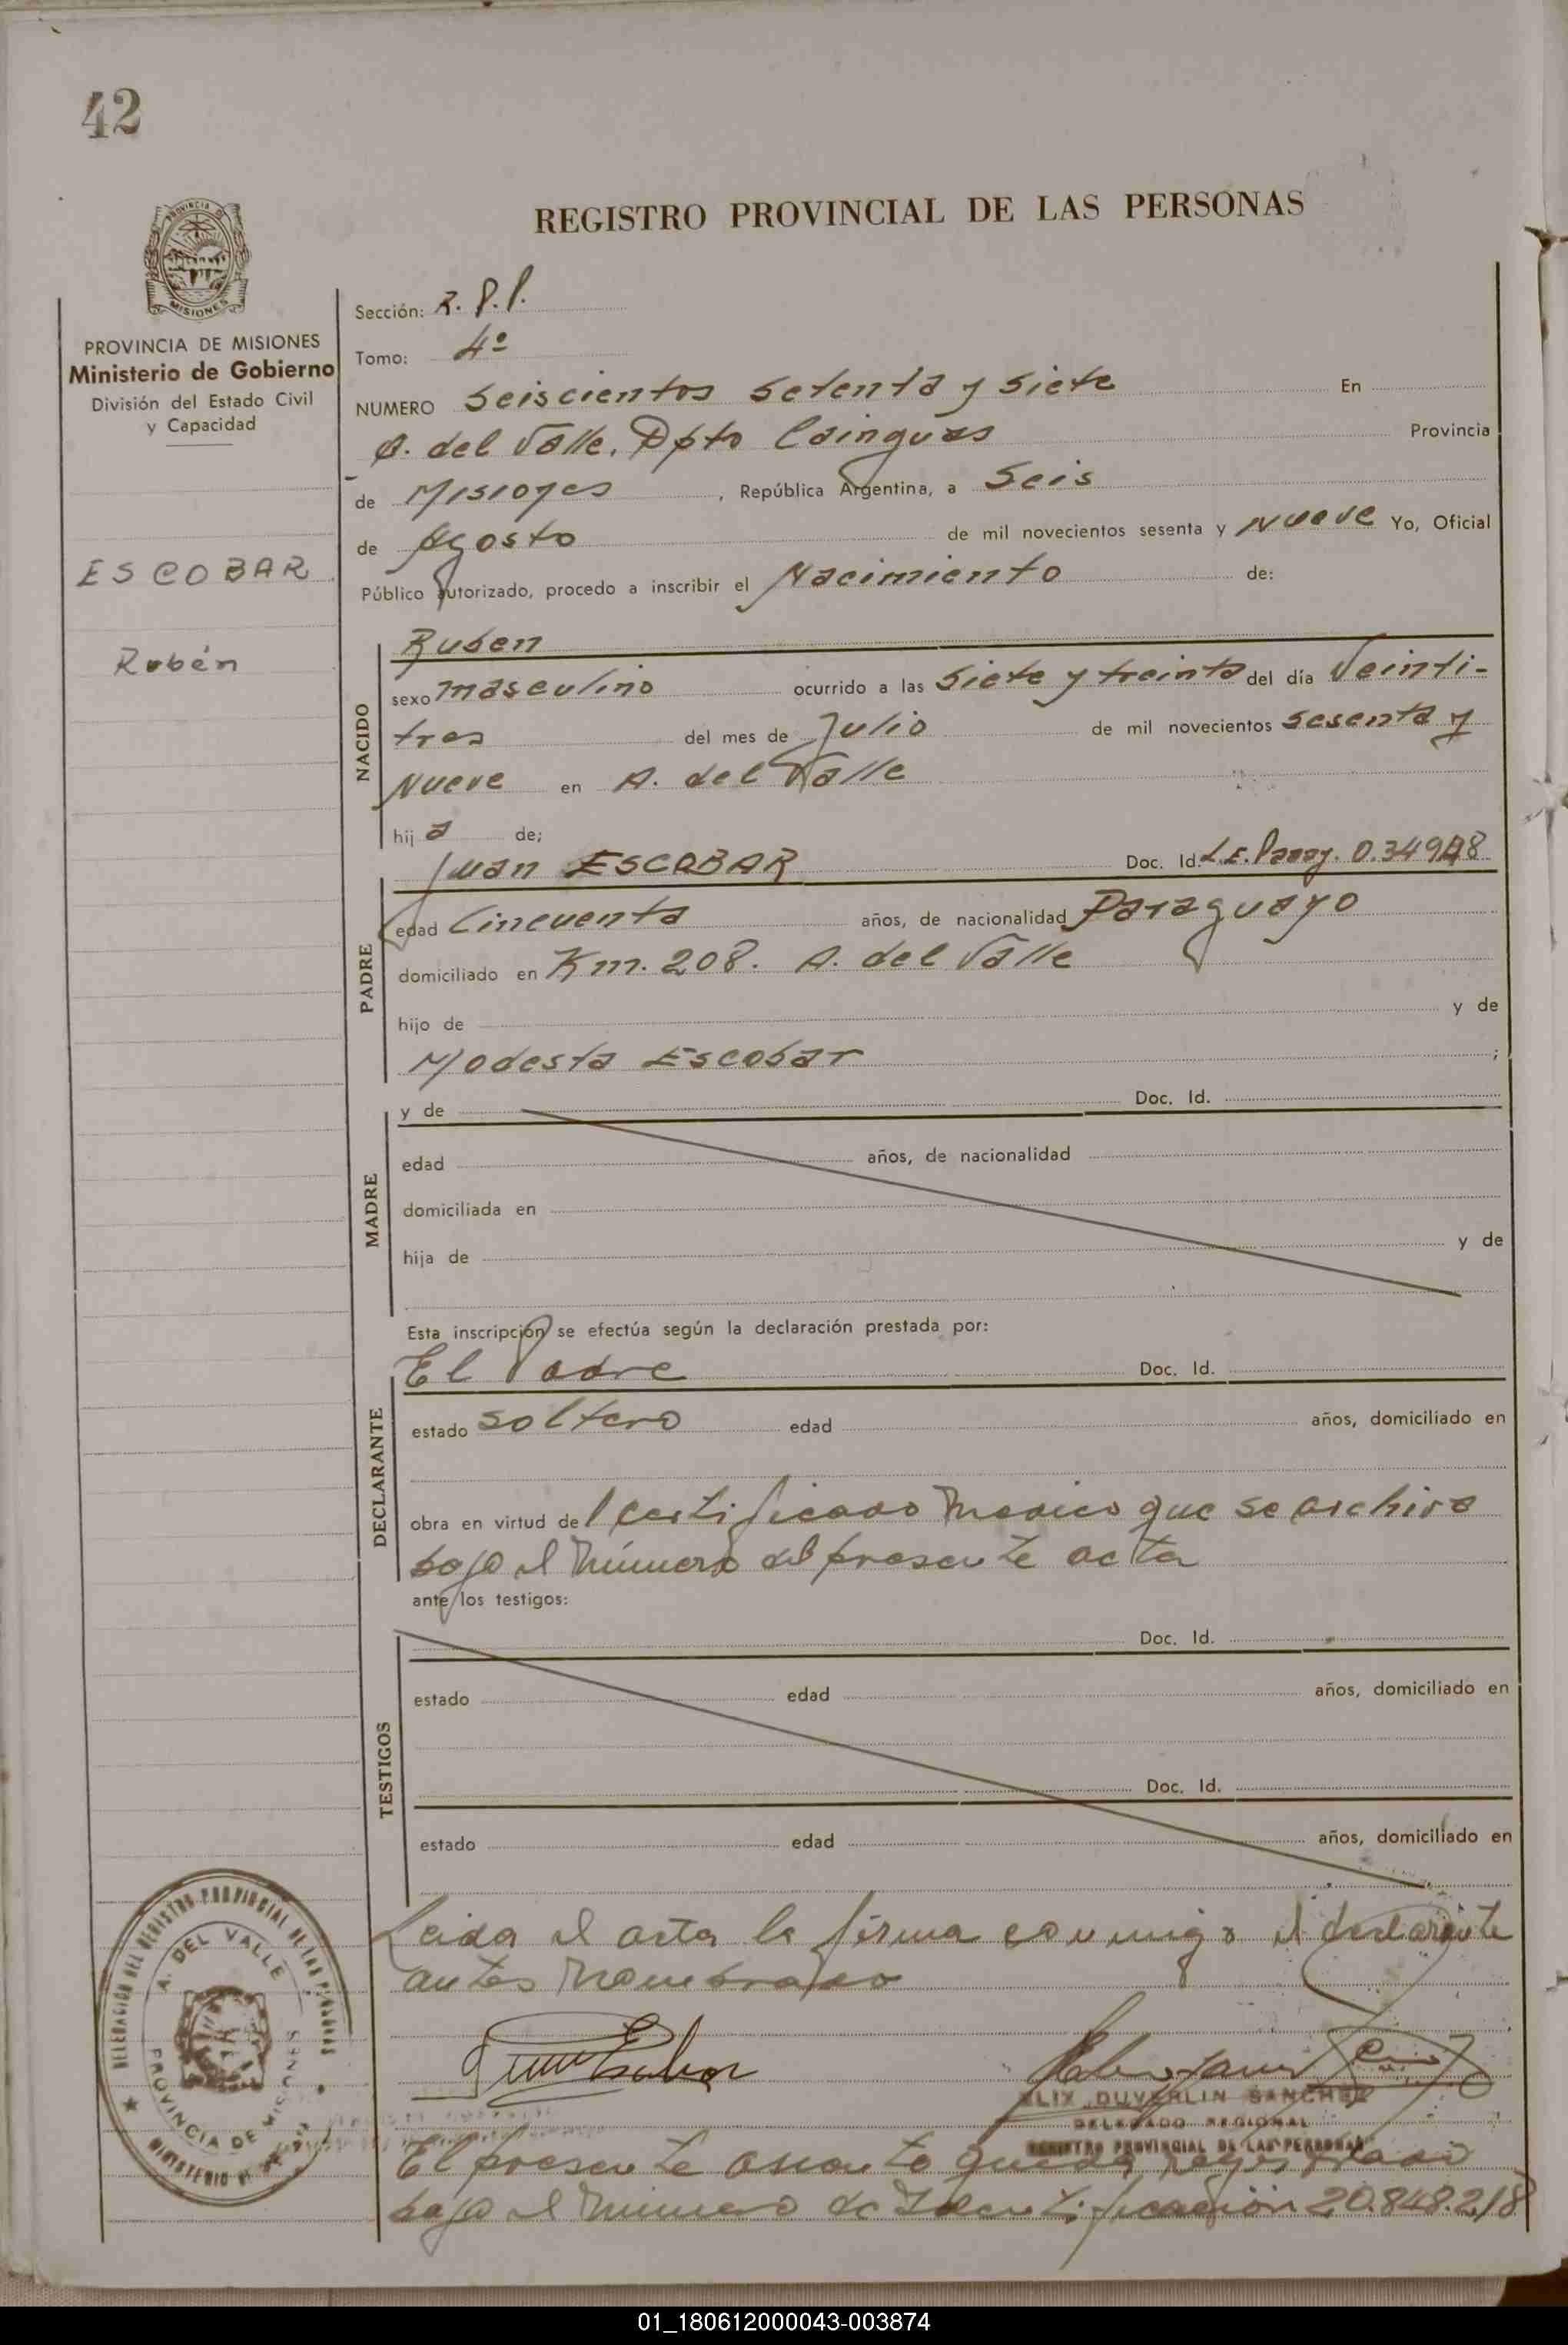 42
REGISTRO PROVINCIAL DE LAS PERSONAS
PROVINCIA DE MISIONES
Ministerio de Gobierno
División del Estado Civil
y Capacidad
ESCOBAR
Rubén
Sección: R.P.P.
Tomo: 4º
NUMERO Seiscientos setenta y siete En
A. del Valle, Dpto Cainguas Provincia
de Misiones, República Argentina, a Seis
de Agosto de mil novecientos sesenta y Nueve Yo, Oficial
Público autorizado, procedo a inscribir el Nacimiento de:
NACIDO
Ruben
sexo masculino ocurrido a las Siete y treinta del día Veinti-
tres del mes de Julio de mil novecientos sesenta y
Nueve en A. del Valle
hij a de;
PADRE
Juan ESCOBAR Doc. Id. L.E. Parag.
edad Cincuenta años, de nacionalidad Paraguayo
domiciliado en Km. 208. A. del Valle
hijo de y de
Modesta Escobar ;
MADRE
y de Doc. Id.
edad años, de nacionalidad
domiciliada en
hija de y de
Esta inscripción se efectúa según la declaración prestada por:
DECLARANTE
El Padre Doc. Id.
estado soltero edad años, domiciliado en
obra en virtud del Certificado Medico que se archiva
bajo el Número del presente acta
ante los testigos:
TESTIGOS
Doc. Id.
estado edad años, domiciliado en
Doc. Id.
estado edad años, domiciliado en
Leida el acta la firma conmigo el declarante
antes Nombrado
Juan Escobar
ELIX DUVERLIN SANCHEZ
DELEGADO REGIONAL
REGISTRO PROVINCIAL DE LAS PERSONAS
El presente asiento queda registrado
bajo el Número de Identificación 20.848.218
DELEGACION DEL REGISTRO PROVINCIAL DE LAS PERSONAS
A. DEL VALLE
PROVINCIA DE MISIONES
01_180612000043-003874